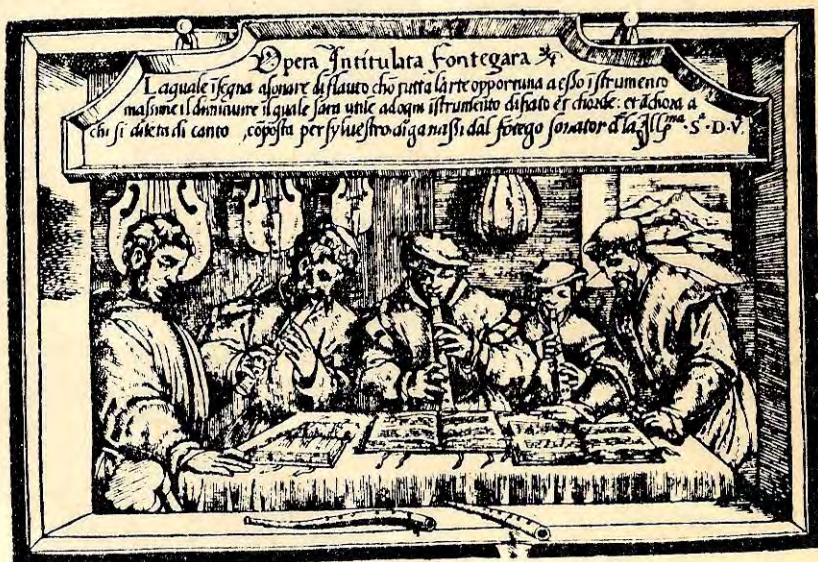 Opera Intitulata Fontegara
Laquale ĩsegna a sonare di flauto chõ tutta l'arte opportuna a esso ĩstrumento
massime il diminuire il quale sara utile ad ogni istrumento di fiato et chorde: et ãchora a
chi si dileta di canto, cõposta per sylvestro di ganassi dal fõtego sonator d la Illma. S.a D. V.a